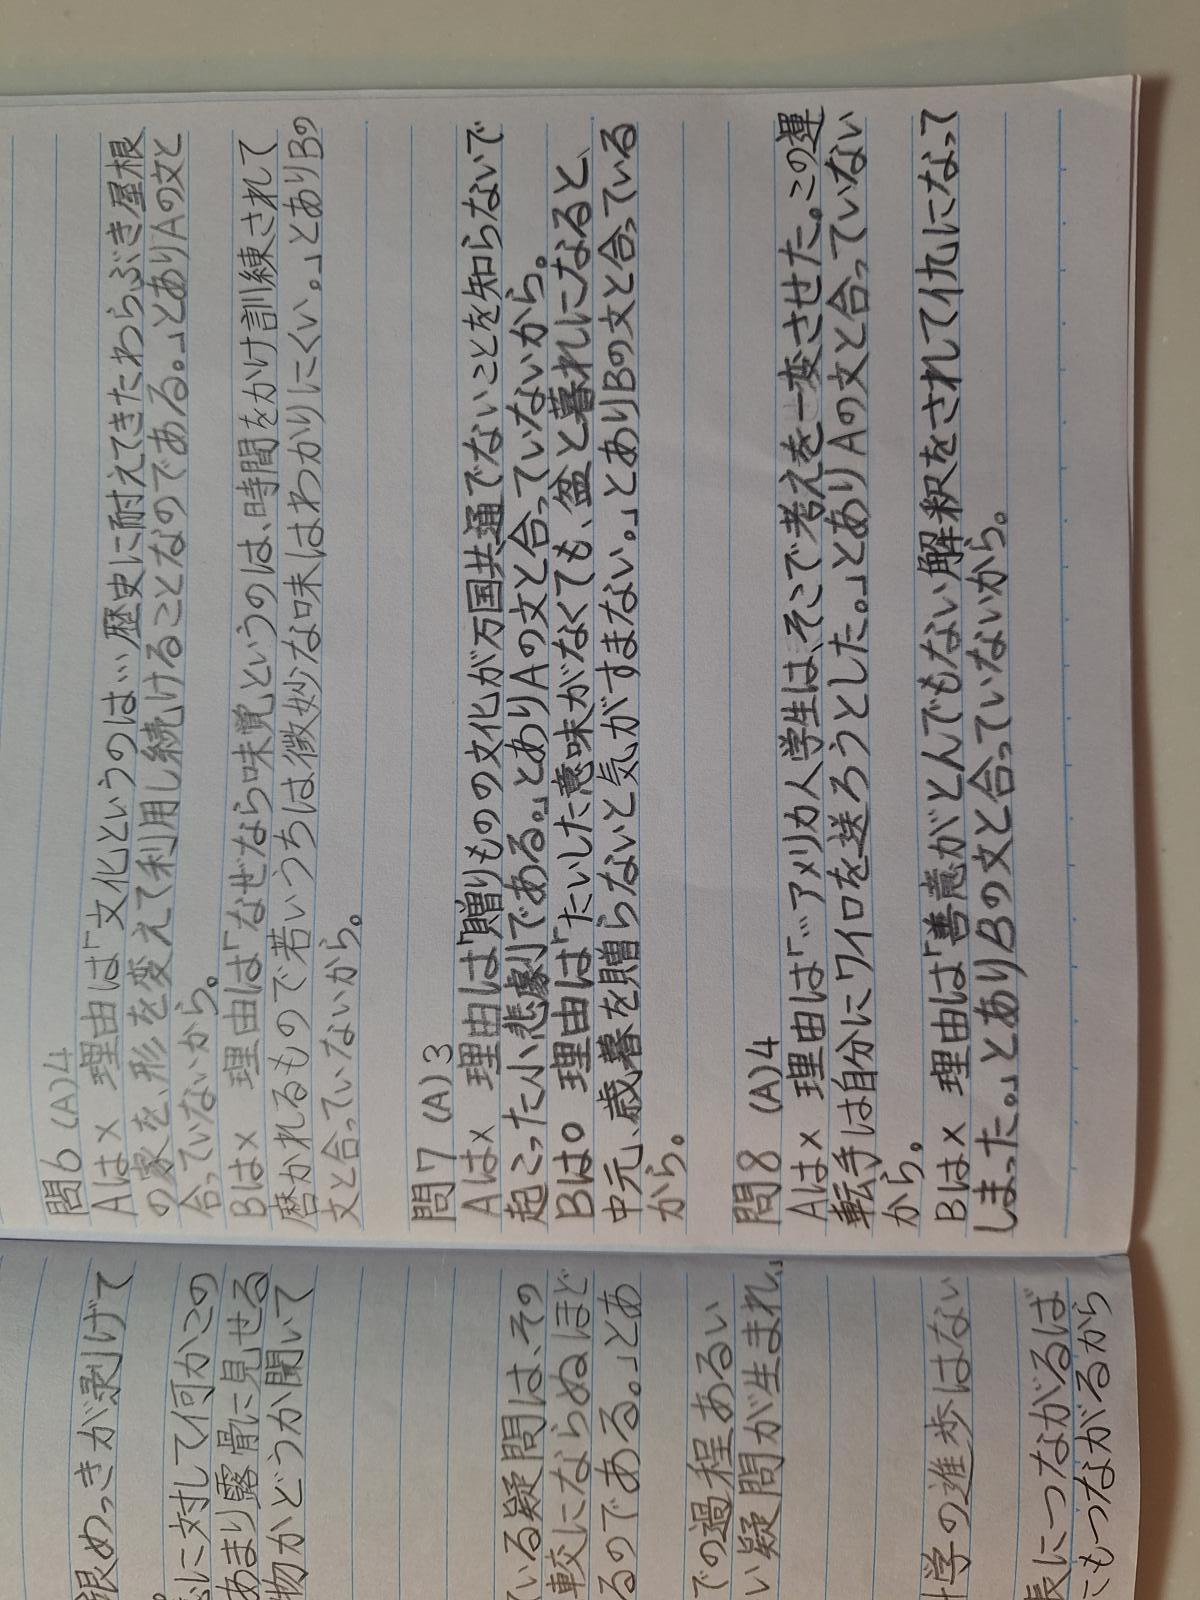 問6 (A)4
Aは× 理由は「文化というのは…歴史に耐えてきたわらぶき屋根
の家を、形を変えて利用し続けることなのである。」とありAの文と
合っていないから。
Bは× 理由は「なぜなら味覚というのは、時間をかけ訓練されて
磨かれるもので若いうちは微妙な味はわかりにくい。」とありBの
文と合っていないから。
問7 (A)3
Aは× 理由は「贈りものの文化が万国共通でないことを知らないで
起こった小悲劇である。」とありAの文と合っていないから。
Bは○ 理由は「たいした意味がなくても、盆と暮れになると、
中元、歳暮を贈らないと気がすまない。」とありBの文と合っている
から。
問8 (A)4
Aは× 理由は「…アメリカ人学生は、そこで考えを一変させた。この運
転手は自分にワイロを送ろうとした。」とありAの文と合っていない
から。
Bは× 理由は「善意がとんでもない解釈をされて仇になって
しまった。」とありBの文と合っていないから。
銀めっきが剥げて
に対して何かこの
あまり露骨に見せる
物かどうか聞いて
ている疑問は、その
較にならぬほど
るのである。」とあ
での過程あるい
い疑問が生まれ、」
学の進歩はない
長につながるば
にもつながるから